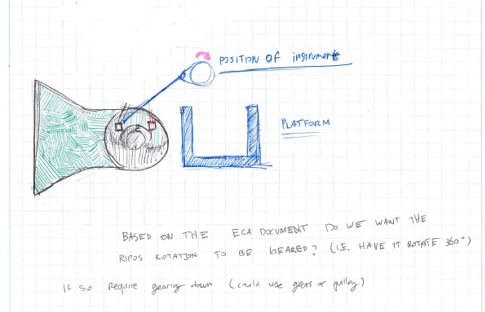 POSITION OF instrument
PLATFORM
BASED ON THE ECA DOCUMENT DO WE WANT THE
RIPOS ROTATION TO BE GEARED? (I.E. HAVE IT ROTATE 360°)
IF SO REQUIRE gearing down (could use gears or pulley)